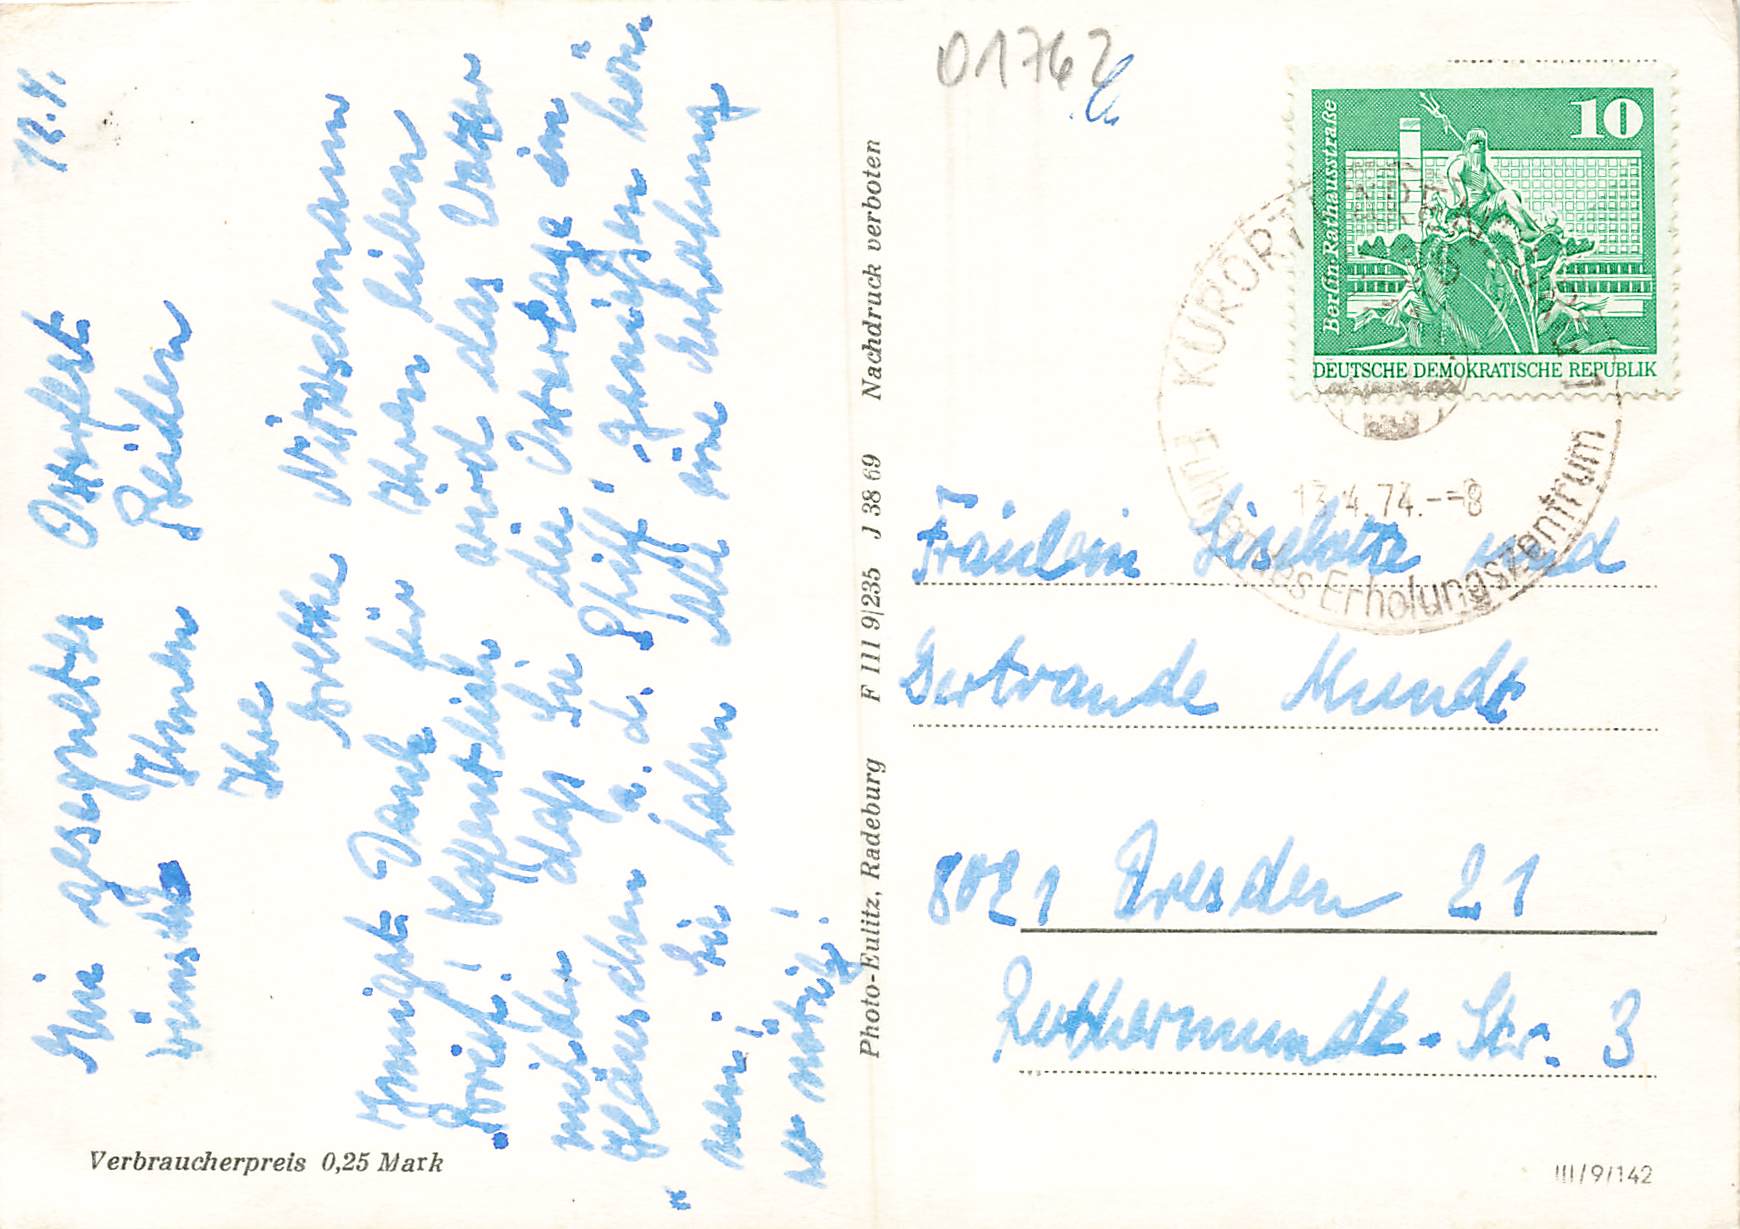 12.4.
Ein gesegnetes Osterfest
wünsche Ihnen Beiden
Ihre
Grethe Nitzschmann
Innigst Dank für Ihren lieben
Brief! Hoffentlich wird das Wetter
milder, daß Sie die Ostertage im
Häuschen a. d. Pfiff genießen kön-
nen! Sie haben alle eine Erholung
so nötig!
Verbraucherpreis 0,25 Mark
Photo-Eulitz, Radeburg F III 9/235 J 38 69 Nachdruck verboten
01762
10
Berlin·Rathausstraße
DEUTSCHE DEMOKRATISCHE REPUBLIK
KURORT
13.4.74.--8
Erholungszentrum
Fräulein Liselotte und
Gertraude Mundt
8021 Dresden 21
Rothermundt-Str. 3
III/9/142